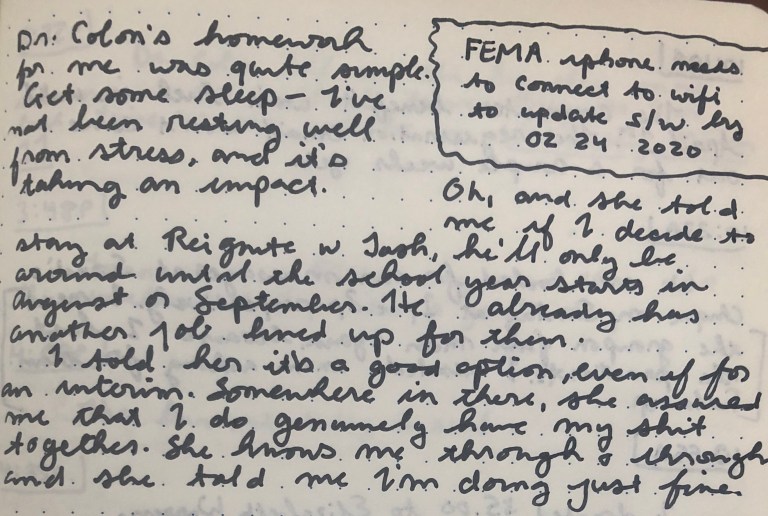 Dr. Colon's homework
for me was quite simple.
Get some sleep – I've
not been resting well
from stress, and it's
taking an impact.
FEMA iphone needs
to connect to wifi
to update s/w by
02 24 2020
Oh, and she told
me if I decide to
stay at Reignite w Josh, he'll only be
around until the school year starts in
august or September. He already has
another job lined up for them.
I told her it's a good option, even if for
an interim. Somewhere in there, she assured
me that I do genuinely have my shit
together. She knows me through & through
and she told me I'm doing just fine.